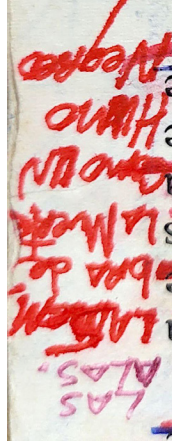 LAS
ALAS.
LA SOM
bra de
LA Muerte
como UN
Humo
Negro